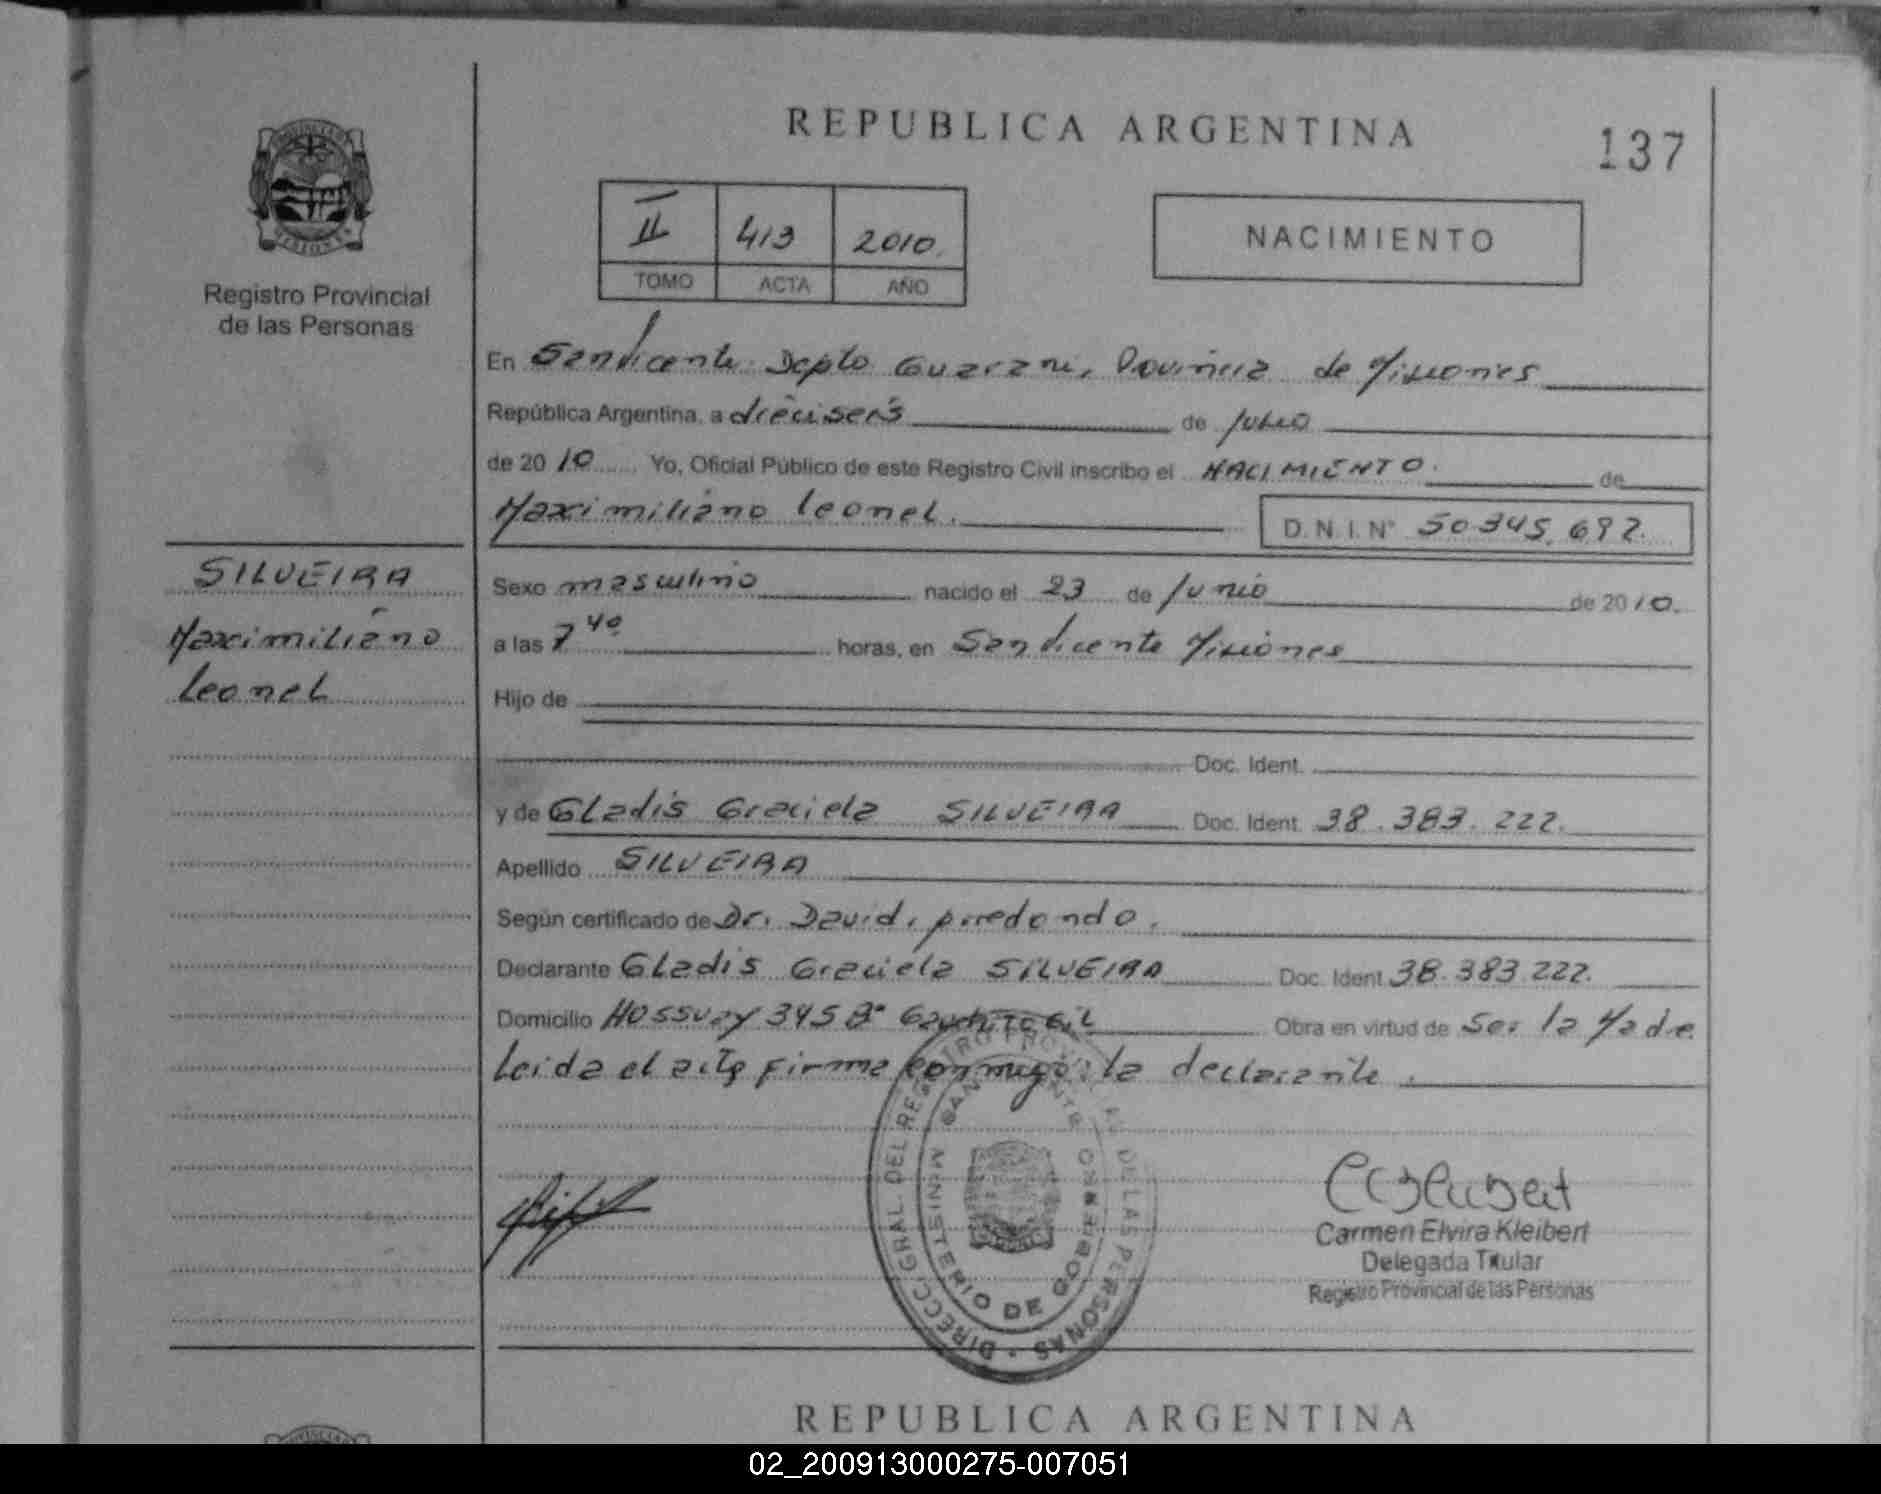 REPUBLICA ARGENTINA
137
II 413 2010.
TOMO ACTA AÑO
NACIMIENTO
Registro Provincial
de las Personas
En San Vicente Depto Guarani, Provincia de Misiones
República Argentina, a dieciseis de Julio
de 2010 Yo, Oficial Público de este Registro Civil inscribo el NACIMIENTO. de
Maximiliano Leonel. D.N.I. N° 50.345.692.
SILVEIRA
Maximiliano
Leonel
Sexo masculino nacido el 23 de Junio de 2010.
a las 7 40 horas, en San Vicente Misiones
Hijo de
Doc. Ident.
y de Gladis Graciela SILVEIRA Doc. Ident. 38.383.222.
Apellido SILVEIRA
Según certificado de Dr. David
Declarante Gladis Graciela SILVEIRA Doc. Ident. 38.383.222.
Domicilio 345 B° Gauchito Gil Obra en virtud de Ser la Madre
Leida el acta firma conmigo la declarante.
DIRECC. GRAL. DEL REGISTRO PROVINCIAL DE LAS PERSONAS
MINISTERIO DE GOBIERNO
SAN VICENTE
Carmen Elvira Kleibert
Delegada Titular
Registro Provincial de las Personas
REPUBLICA ARGENTINA
02_200913000275-007051